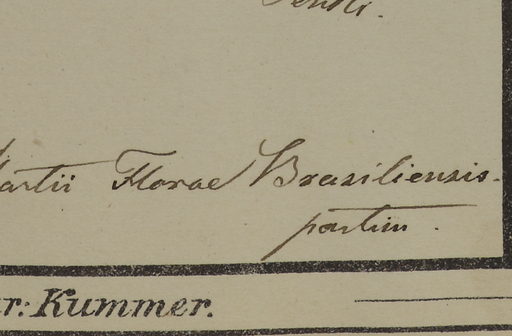 artii Florae Brasiliensis.
partim.
r: Kummer.